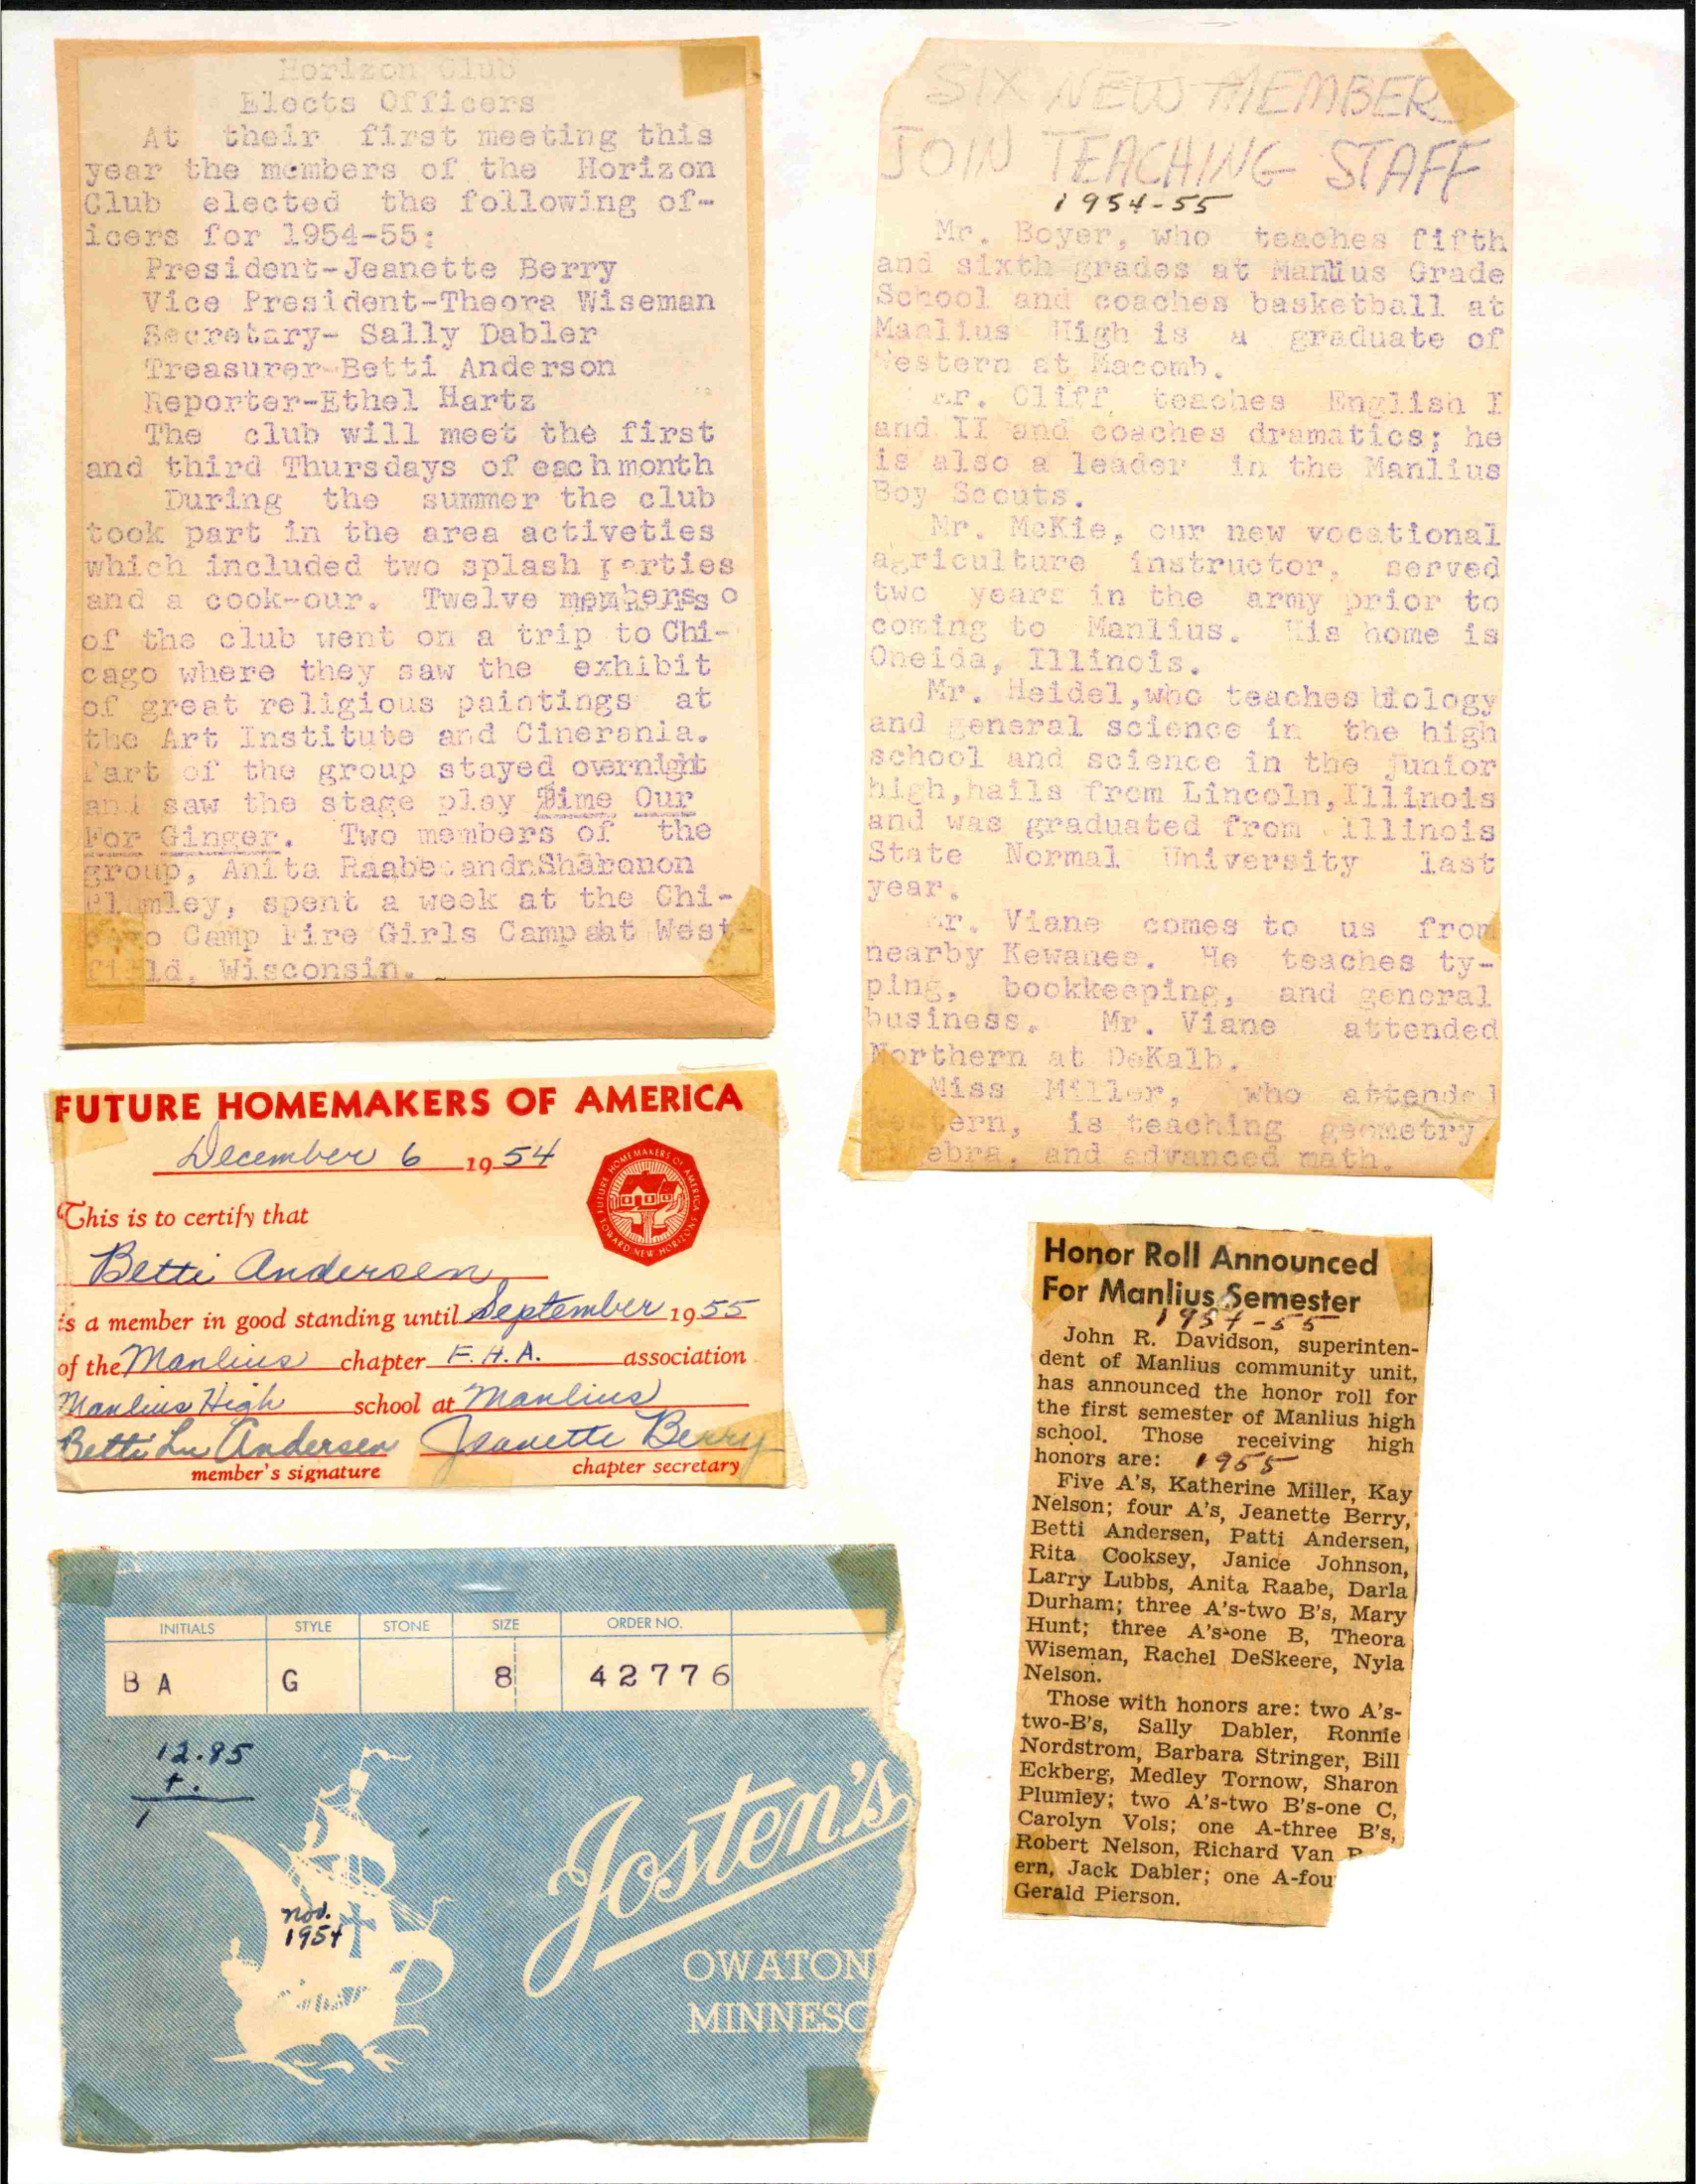 Horizon Club
Elects Officers
At their first meeting this
year the members of the Horizon
Club elected the following of-
icers for 1954-55:
President-Jeanette Berry
Vice President-Theora Wiseman
Secretary- Sally Dabler
Treasurer-Betti Anderson
Reporter-Ethel Hartz
The club will meet the first
and third Thursdays of each month
During the summer the club
took part in the area activeties
which included two splash parties
and a cook-our. Twelve members o
of the club went on a trip to Chi-
cago where they saw the exhibit
of great religious paintings at
the Art Institute and Cinerania.
Part of the group stayed overnight
and saw the stage play Time Our
For Ginger. Two members of the
group, Anita Raabe and Sharon
Plumley, spent a week at the Chi-
cago Camp Fire Girls Camp at West-
field, Wisconsin.
SIX NEW MEMBERS
JOIN TEACHING STAFF
1954-55
Mr. Boyer, who teaches fifth
and sixth grades at Manlius Grade
School and coaches basketball at
Manlius High is a graduate of
Western at Macomb.
Mr. Cliff teaches English I
and II and coaches dramatics; he
is also a leader in the Manlius
Boy Scouts.
Mr. McKie, our new vocational
agriculture instructor, served
two years in the army prior to
coming to Manlius. His home is
Oneida, Illinois.
Mr. Heidel, who teaches biology
and general science in the high
school and science in the junior
high, hails from Lincoln, Illinois
and was graduated from Illinois
State Normal University last
year.
Mr. Viane comes to us from
nearby Kewanee. He teaches ty-
ping, bookkeeping, and general
business. Mr. Viane attended
Northern at DeKalb.
Miss Miller, who attended
Western, is teaching geometry,
algebra, and advanced math.
FUTURE HOMEMAKERS OF AMERICA
December 6 1954
FUTURE HOMEMAKERS OF AMERICA
TOWARD NEW HORIZONS
This is to certify that
Betti Andersen
is a member in good standing until September 1955
of the Manlius chapter F.H.A. association
Manlius High school at Manlius
Betti Lu Andersen Jeanette Berry
member's signature chapter secretary
Honor Roll Announced
For Manlius Semester
1954-55
John R. Davidson, superinten-
dent of Manlius community unit,
has announced the honor roll for
the first semester of Manlius high
school. Those receiving high
honors are: 1955
Five A's, Katherine Miller, Kay
Nelson; four A's, Jeanette Berry,
Betti Andersen, Patti Andersen,
Rita Cooksey, Janice Johnson,
Larry Lubbs, Anita Raabe, Darla
Durham; three A's-two B's, Mary
Hunt; three A's-one B, Theora
Wiseman, Rachel DeSkeere, Nyla
Nelson.
Those with honors are: two A's-
two-B's, Sally Dabler, Ronnie
Nordstrom, Barbara Stringer, Bill
Eckberg, Medley Tornow, Sharon
Plumley; two A's-two B's-one C,
Carolyn Vols; one A-three B's,
Robert Nelson, Richard Van
ern, Jack Dabler; one A-fou
Gerald Pierson.
INITIALS STYLE STONE SIZE ORDER NO.
B A G 8 42776
12.95
+.
Josten's
nov.
1954
OWATON
MINNESO